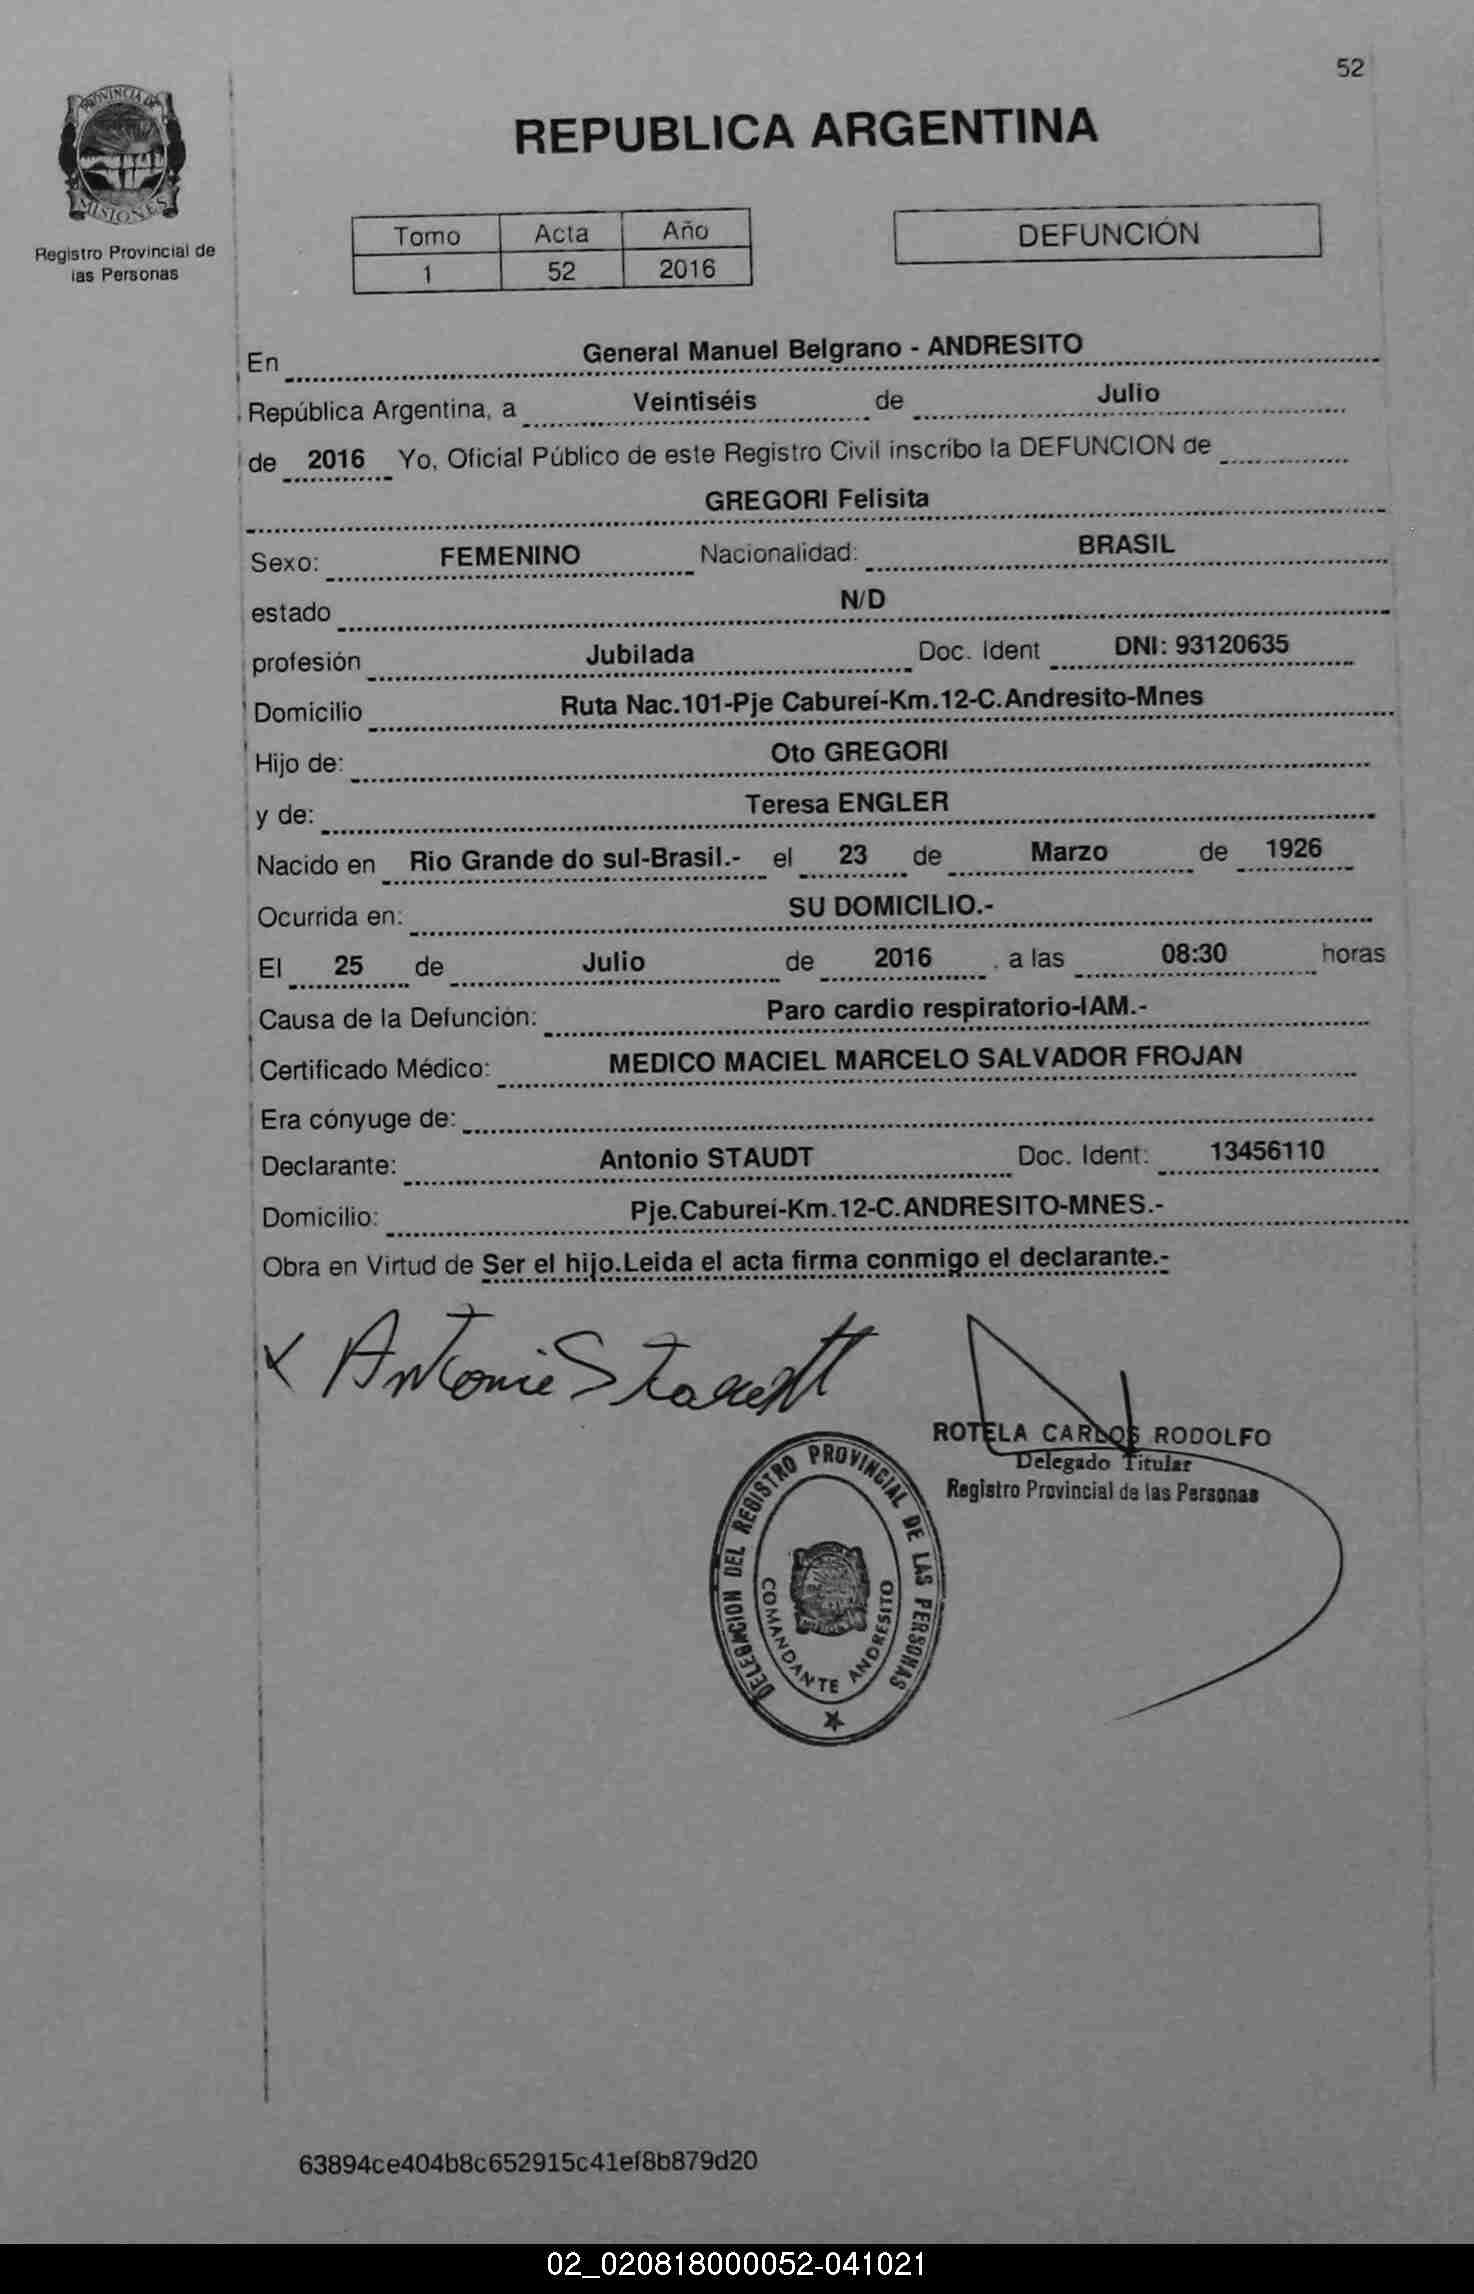 52
PROVINCIA DE
MISIONES
Registro Provincial de
las Personas
REPUBLICA ARGENTINA
Tomo Acta Año
1 52 2016
DEFUNCIÓN
En General Manuel Belgrano - ANDRESITO
República Argentina, a Veintiséis de Julio
de 2016 Yo, Oficial Público de este Registro Civil inscribo la DEFUNCION de
GREGORI Felisita
Sexo: FEMENINO Nacionalidad: BRASIL
estado N/D
profesión Jubilada Doc. Ident DNI: 93120635
Domicilio Ruta Nac.101-Pje Cabureí-Km.12-C.Andresito-Mnes
Hijo de: Oto GREGORI
y de: Teresa ENGLER
Nacido en Rio Grande do sul-Brasil.- el 23 de Marzo de 1926
Ocurrida en: SU DOMICILIO.-
El 25 de Julio de 2016 . a las 08:30 horas
Causa de la Defunción: Paro cardio respiratorio-IAM.-
Certificado Médico: MEDICO MACIEL MARCELO SALVADOR FROJAN
Era cónyuge de:
Declarante: Antonio STAUDT Doc. Ident: 13456110
Domicilio: Pje.Cabureí-Km.12-C.ANDRESITO-MNES.-
Obra en Virtud de Ser el hijo.Leida el acta firma conmigo el declarante.-
x Antonio Staudt
ROTELA CARLOS RODOLFO
Delegado Titular
Registro Provincial de las Personas
DELEGACION DEL REGISTRO PROVINCIAL DE LAS PERSONAS
COMANDANTE ANDRESITO
63894ce404b8c652915c41ef8b879d20
02_020818000052-041021